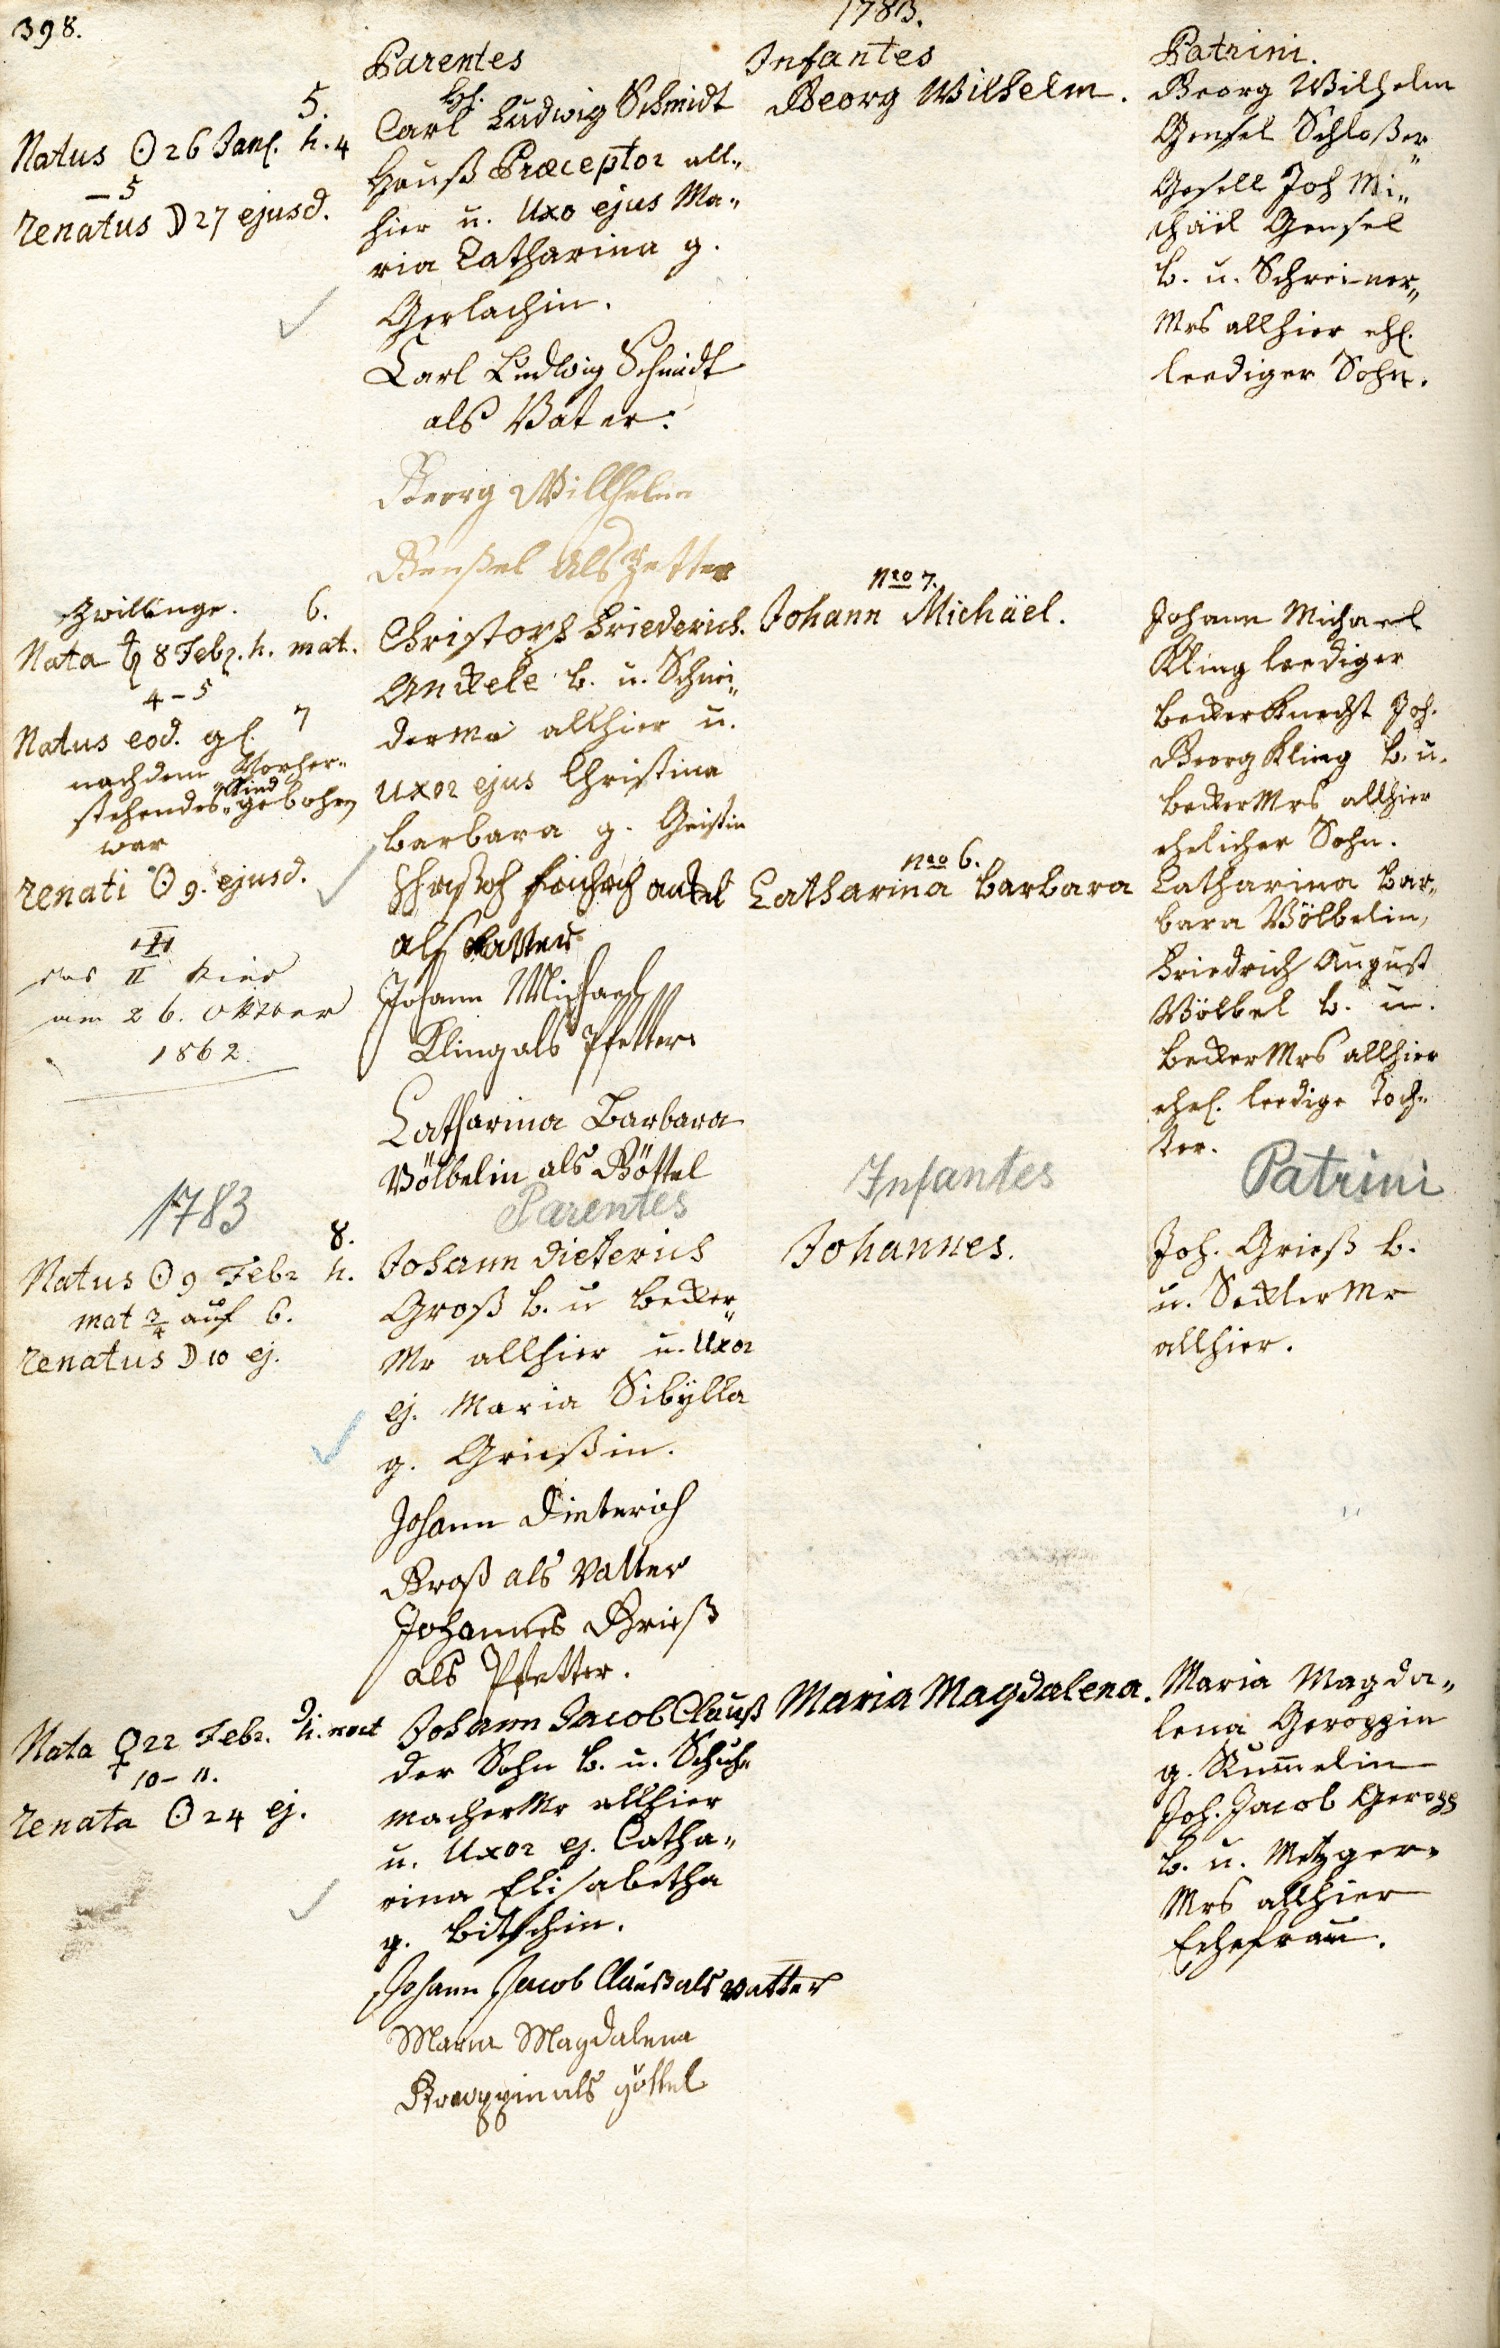 398.
1783.
Parentes
Infantes
Patrini.
5.
Natus ☉ 26 Jan. h. 4
– 5
renatus ☽ 27 ejusd.
H.
Carl Ludwig Schmidt
Hauß Præceptor all„
hier u. Uxo ejus Ma„
ria Catharina g.
Gerlachin.
Carl Ludwig Schmidt
als Vater.
Georg Willhelm
Genßel als Petter
Georg Wilhelm.
Georg Wilhelm
Gensel Schloßer„
Gesell Joh Mi„
chäel Gensel
b. u. Schreiner„
Mrs allhier ehl.
leediger Sohn.
Zwillinge. 6.
Nata ♄ 8 Febr. h. mat.
4 – 5
Natus eod. gl. 7
nachdem Vorher„
stehendes Kind gebohren
war
renati ☉ 9. ejusd.
das II Kind
am 26. Oktober
1862.
Christoph Friederich
Anckele b. u. Schnei„
der Mr allhier u.
Uxor ejus Christina
Barbara g. Geistin
als Vatter
Johann Michael
Kling als Pfetter
Catharina Barbara
Völbelin als Göttel
Nro 7.
Johann Michäel.
Nro 6.
Catharina Barbara
Johann Michael
Kling leediger
Beckerknecht Joh.
Georg Kling b. u.
Becker Mrs allhier
ehelicher Sohn.
Catharina Bar„
bara Völbelin,
Friedrich August
Völbel b. u.
Becker Mrs allhier
ehel. leedige Toch„
ter.
1783
Parentes
Infantes
Patrini
8.
Natus ☉ 9 Febr h.
mat 3/4 auf 6.
renatus ☽ 10 ej.
Johann Dieterich
Groß b. u Becker„
Mr allhier u. Uxor
ej. Maria Sibÿlla
g. Grießin.
Johann Dieterich
Groß als Vatter
Johannes Grieß
als Pfetter.
Johannes.
Joh. Grieß b.
u. Seckler Mr
allhier.
9.
Nata ♀ 22 Febr. h. noct
10 – 11.
renata ☉ 24 ej.
Johann Jacob Clauß
der Sohn b. u. Schuh„
macher Mr allhier
u. Uxor ej. Catha„
rina Elisabetha
g. Bitschin.
Johann Jacob Clauß als Vatter
Maria Magdalena
als göttel
Maria Magdalena.
Maria Magda„
lena Geroppin
g. Kum̄elin
Joh. Jacob Geropp
b. u. Metzger„
Mrs allhier
Ehefrau.